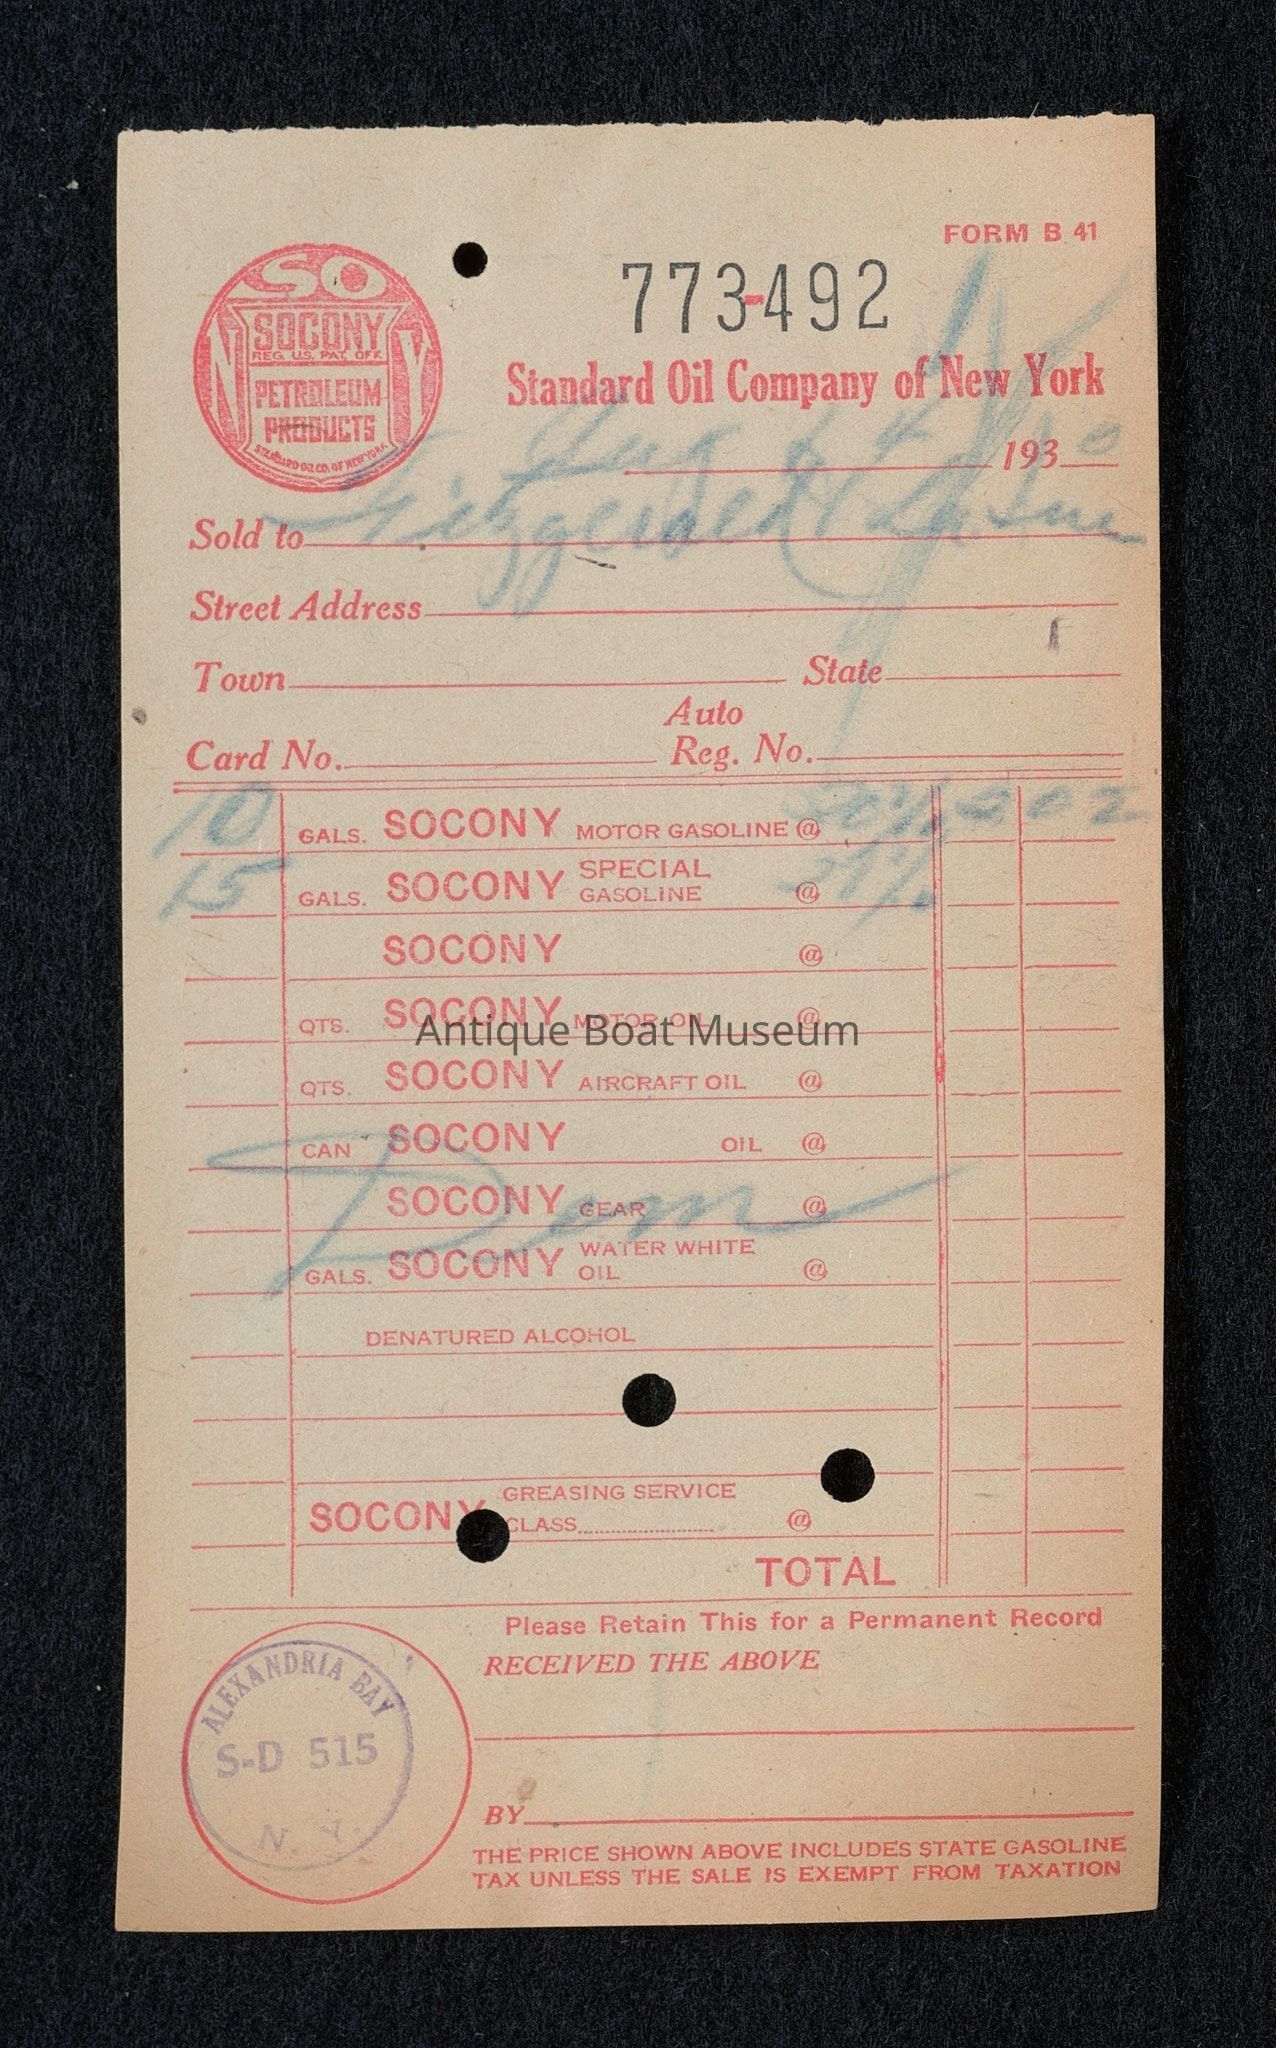 FORM B 41
SO
NY
SOCONY
REG. U.S. PAT. OFF.
PETROLEUM
PRODUCTS
STANDARD OIL CO. OF NEW YORK
773-492
Standard Oil Company of New York
Aug 4 1930
Sold to
Street Address
Town State
Auto
Card No. Reg. No.
10 GALS. SOCONY MOTOR GASOLINE @ 2 02
15 GALS. SOCONY SPECIAL GASOLINE @
SOCONY @
QTS. SOCONY MOTOR OIL @
Antique Boat Museum
QTS. SOCONY AIRCRAFT OIL @
CAN SOCONY OIL @
SOCONY GEAR @
GALS. SOCONY WATER WHITE OIL @
DENATURED ALCOHOL
SOCONY GREASING SERVICE
CLASS @
TOTAL
Please Retain This for a Permanent Record
RECEIVED THE ABOVE
ALEXANDRIA BAY
S-D 515
N. Y.
BY
THE PRICE SHOWN ABOVE INCLUDES STATE GASOLINE
TAX UNLESS THE SALE IS EXEMPT FROM TAXATION